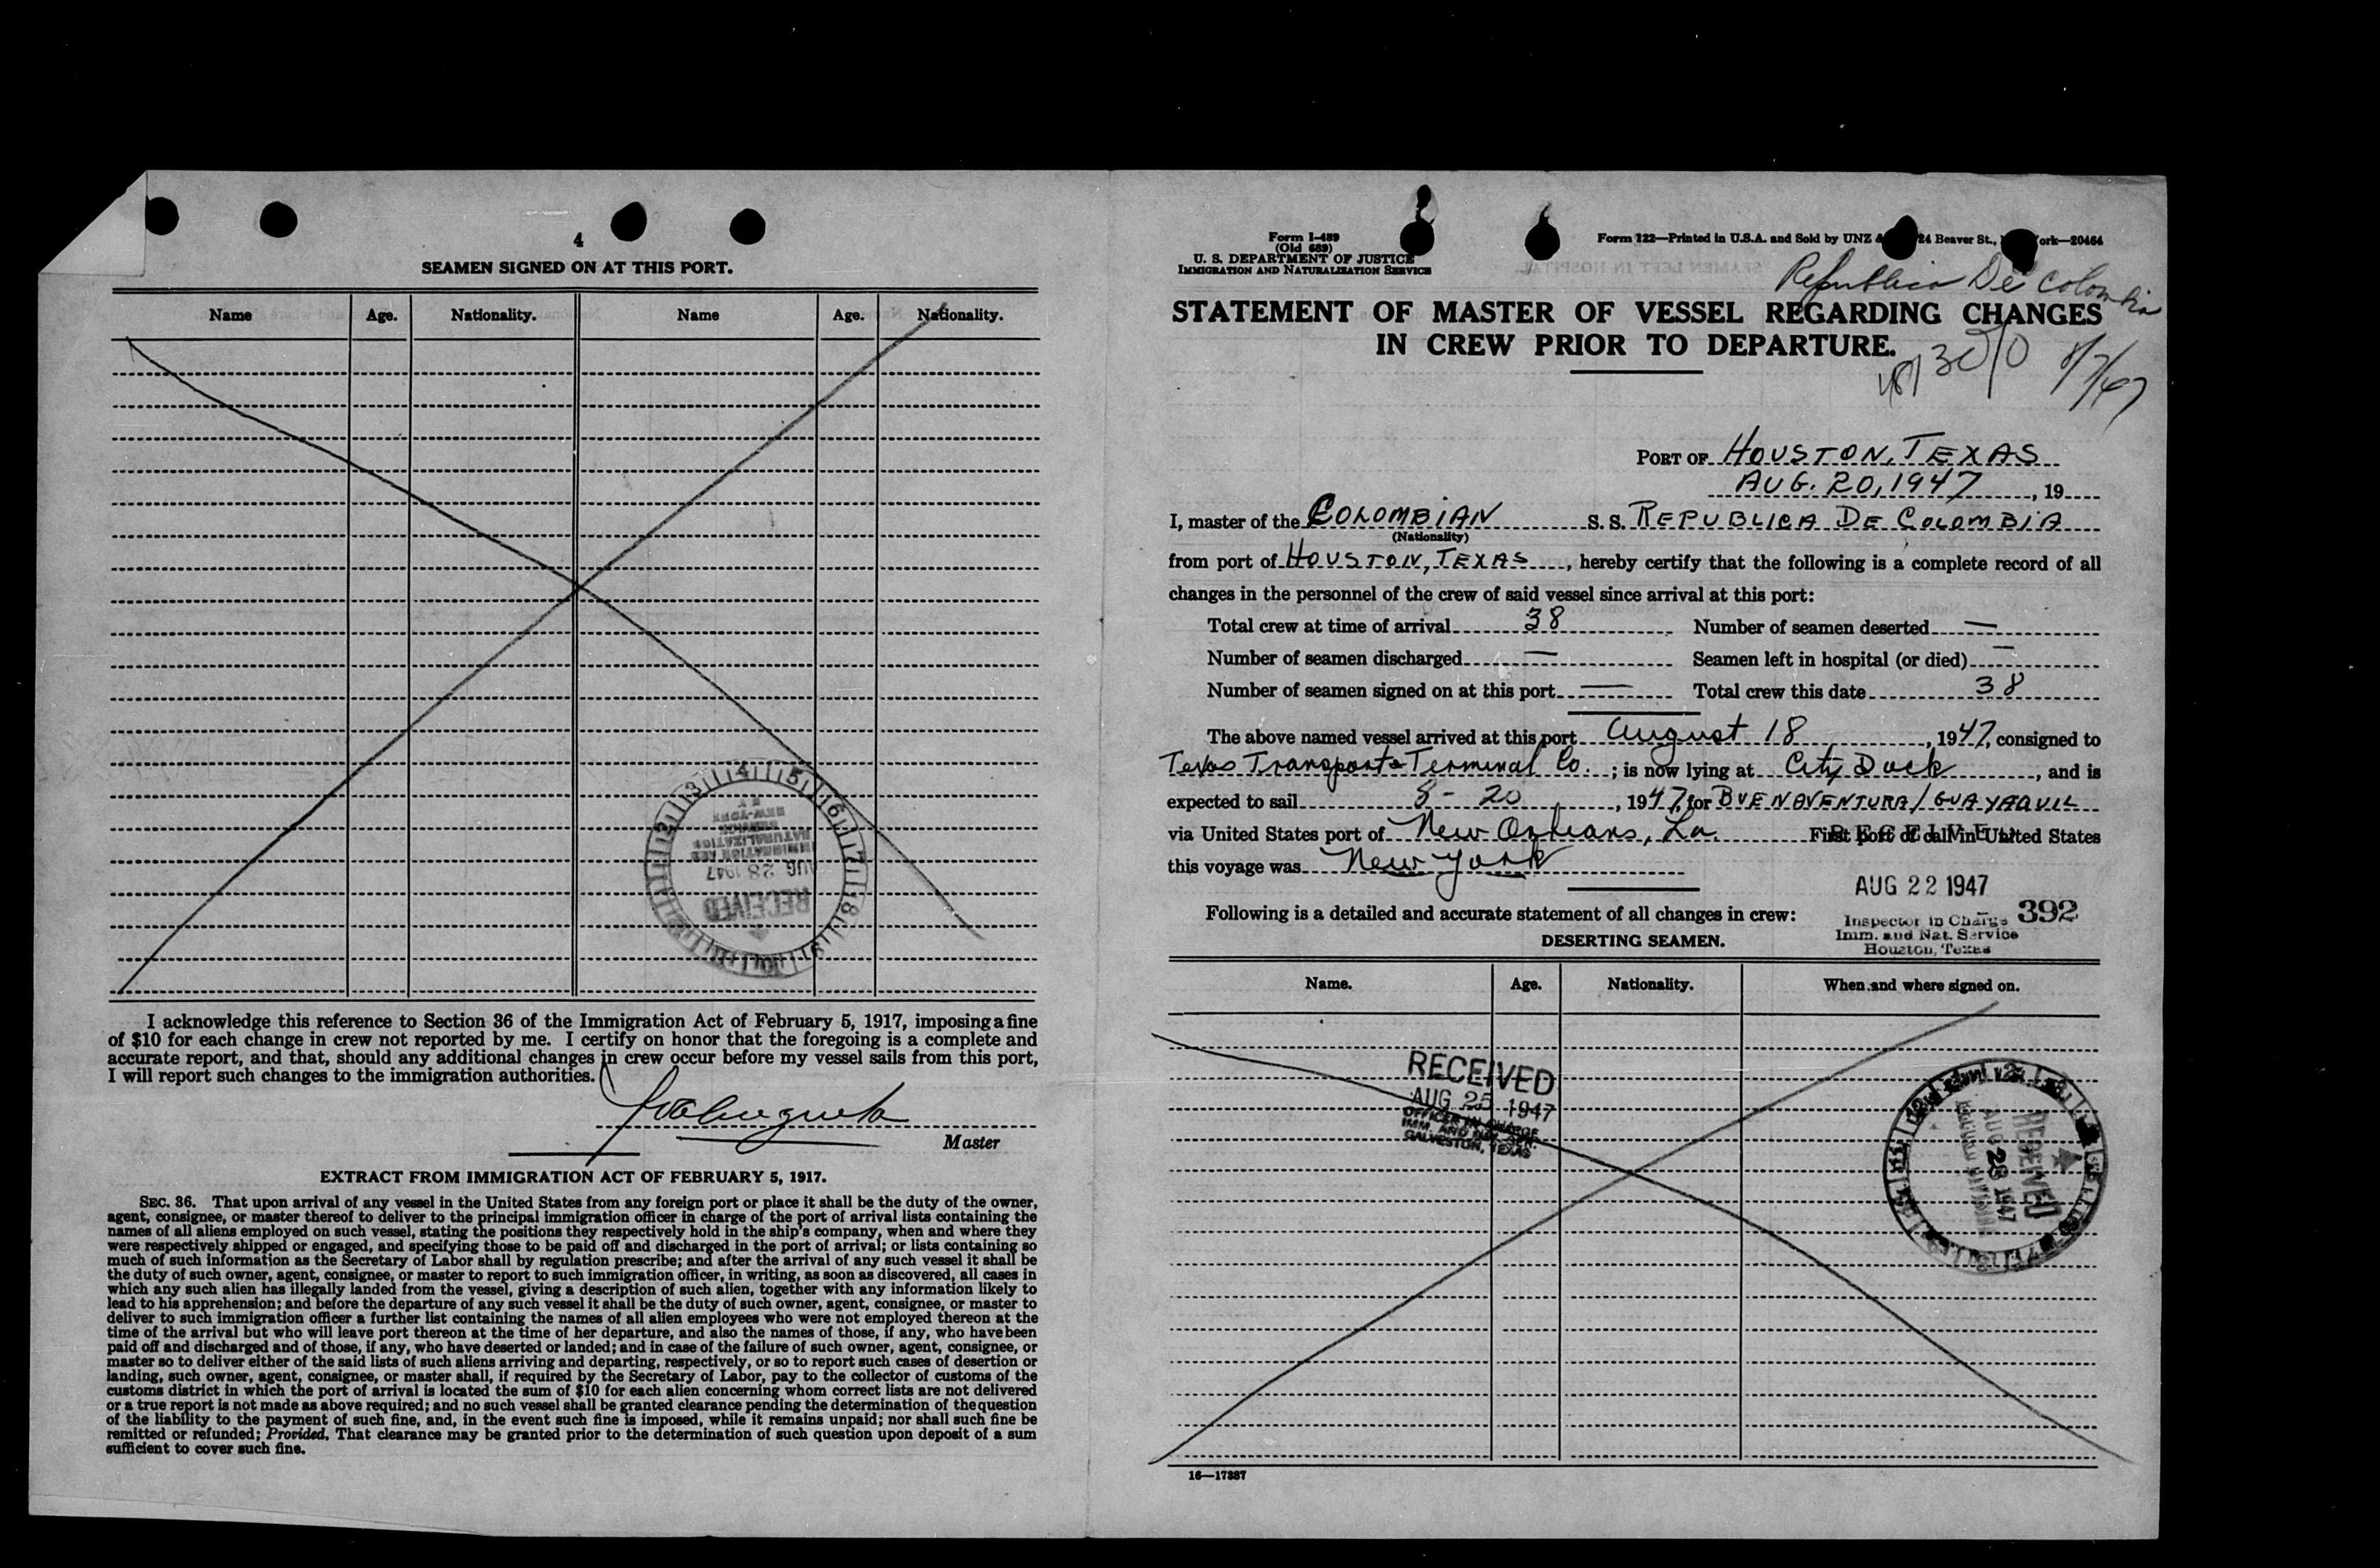 4
SEAMEN SIGNED ON AT THIS PORT.
Name Age. Nationality. Name Age. Nationality.
4 5 6 7 8 9
NEW-YORK
SERVICE
NATURALIZATION
IMMIGRATION AND
AUG 28 1947
RECEIVED
I acknowledge this reference to Section 36 of the Immigration Act of February 5, 1917, imposing a fine
of $10 for each change in crew not reported by me. I certify on honor that the foregoing is a complete and
accurate report, and that, should any additional changes in crew occur before my vessel sails from this port,
I will report such changes to the immigration authorities.
Master
EXTRACT FROM IMMIGRATION ACT OF FEBRUARY 5, 1917.
SEC. 36. That upon arrival of any vessel in the United States from any foreign port or place it shall be the duty of the owner,
agent, consignee, or master thereof to deliver to the principal immigration officer in charge of the port of arrival lists containing the
names of all aliens employed on such vessel, stating the positions they respectively hold in the ship's company, when and where they
were respectively shipped or engaged, and specifying those to be paid off and discharged in the port of arrival; or lists containing so
much of such information as the Secretary of Labor shall by regulation prescribe; and after the arrival of any such vessel it shall be
the duty of such owner, agent, consignee, or master to report to such immigration officer, in writing, as soon as discovered, all cases in
which any such alien has illegally landed from the vessel, giving a description of such alien, together with any information likely to
lead to his apprehension; and before the departure of any such vessel it shall be the duty of such owner, agent, consignee, or master to
deliver to such immigration officer a further list containing the names of all alien employees who were not employed thereon at the
time of the arrival but who will leave port thereon at the time of her departure, and also the names of those, if any, who have been
paid off and discharged and of those, if any, who have deserted or landed; and in case of the failure of such owner, agent, consignee, or
master so to deliver either of the said lists of such aliens arriving and departing, respectively, or so to report such cases of desertion or
landing, such owner, agent, consignee, or master shall, if required by the Secretary of Labor, pay to the collector of customs of the
customs district in which the port of arrival is located the sum of $10 for each alien concerning whom correct lists are not delivered
or a true report is not made as above required; and no such vessel shall be granted clearance pending the determination of the question
of the liability to the payment of such fine, and, in the event such fine is imposed, while it remains unpaid; nor shall such fine be
remitted or refunded; Provided, That clearance may be granted prior to the determination of such question upon deposit of a sum
sufficient to cover such fine.
Form I-489
(Old 689)
U. S. DEPARTMENT OF JUSTICE
IMMIGRATION AND NATURALIZATION SERVICE
Form 122—Printed in U.S.A. and Sold by UNZ & 24 Beaver St., ork—20464
Republica De Colombia
STATEMENT OF MASTER OF VESSEL REGARDING CHANGES
IN CREW PRIOR TO DEPARTURE.
8/7/47
PORT OF HOUSTON, TEXAS
AUG. 20, 1947, 19
I, master of the COLOMBIAN S. S. REPUBLICA DE COLOMBIA
(Nationality)
from port of HOUSTON, TEXAS, hereby certify that the following is a complete record of all
changes in the personnel of the crew of said vessel since arrival at this port:
Total crew at time of arrival 38 Number of seamen deserted —
Number of seamen discharged — Seamen left in hospital (or died) —
Number of seamen signed on at this port — Total crew this date 38
The above named vessel arrived at this port August 18, 1947, consigned to
Texas Transport & Terminal Co.; is now lying at City Dock, and is
expected to sail 8-20, 1947, for BUENAVENTURA/GUAYAQUIL
via United States port of New Orleans, La. First port of call in United States
this voyage was New York
RECEIVED
AUG 22 1947
Inspector in Charge 392
Imm. and Nat. Service
Houston, Texas
Following is a detailed and accurate statement of all changes in crew:
DESERTING SEAMEN.
Name. Age. Nationality. When and where signed on.
RECEIVED
AUG 25 1947
OFFICER IN CHARGE
IMM. AND NAT. SER.
GALVESTON, TEXAS
RECEIVED
AUG 28 1947
16—17387